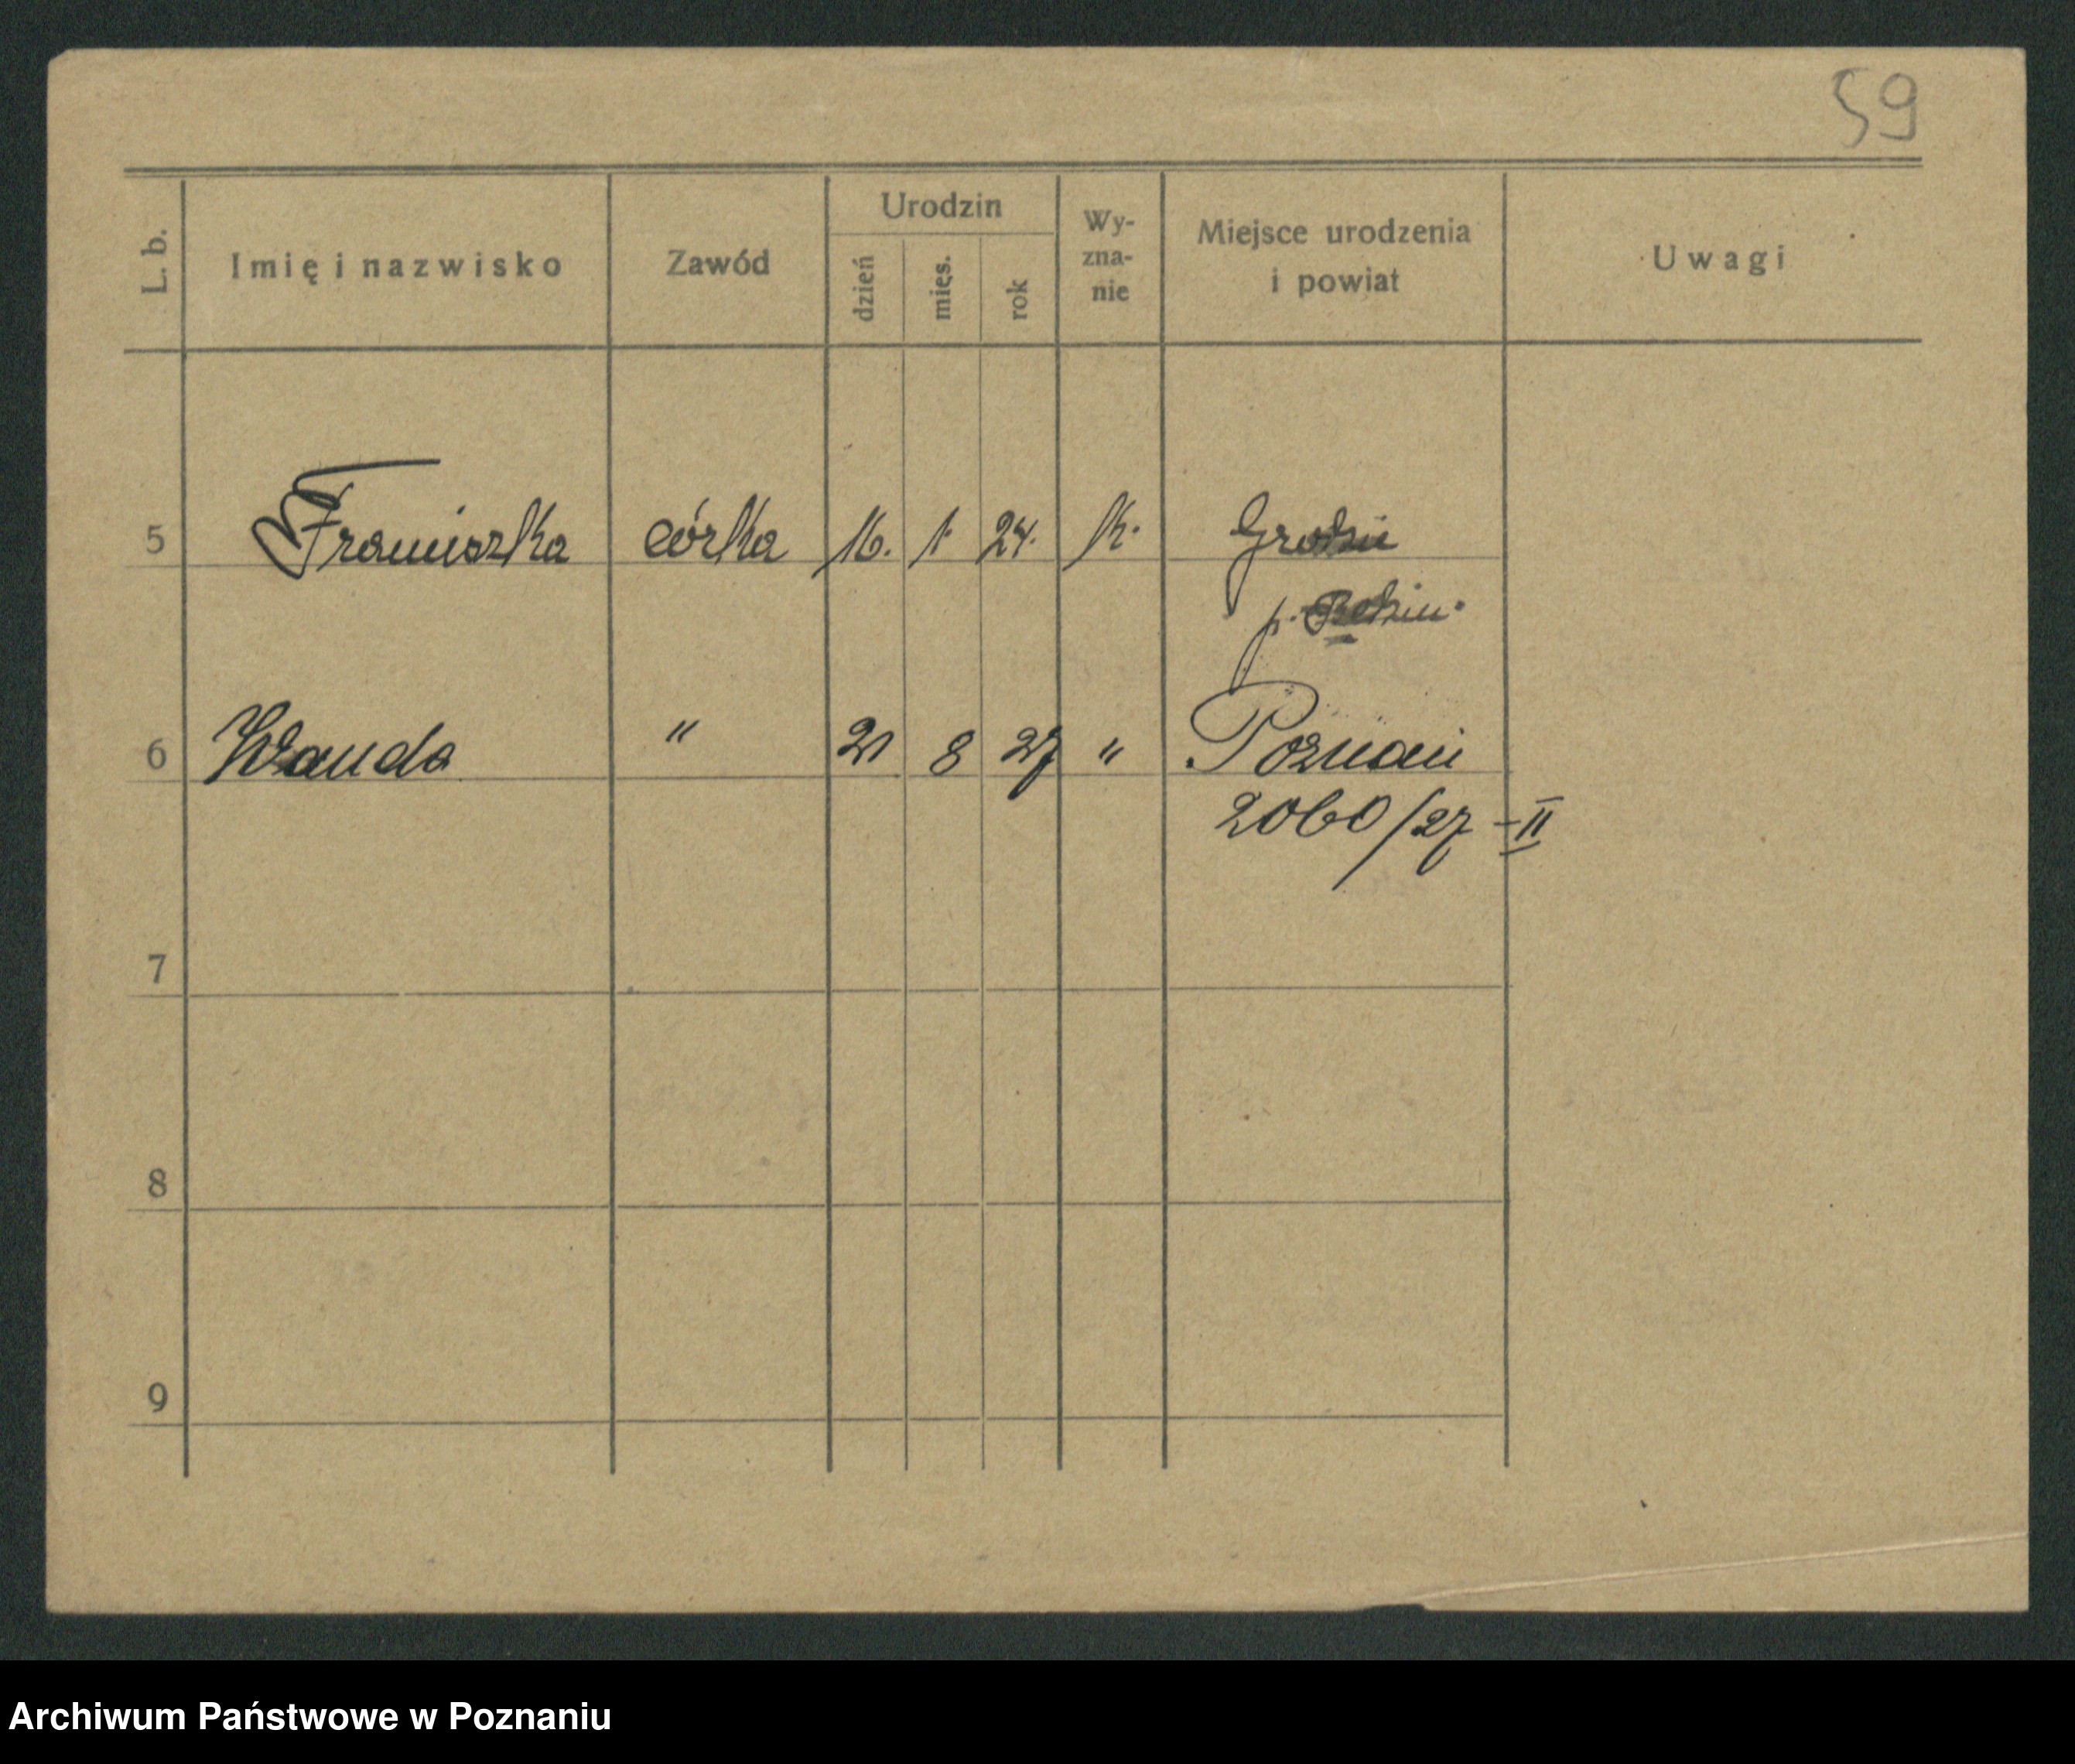 59
L. b. Imię i nazwisko Zawód Urodzin Wy-zna-nie Miejsce urodzenia i powiat Uwagi
dzień mięs. rok
5 Franciszka córka 16. 1. 24. k.
p.
6 Wanda " 21 8 27 " Poznań
2060/27-II
7
8
9
Archiwum Państwowe w Poznaniu